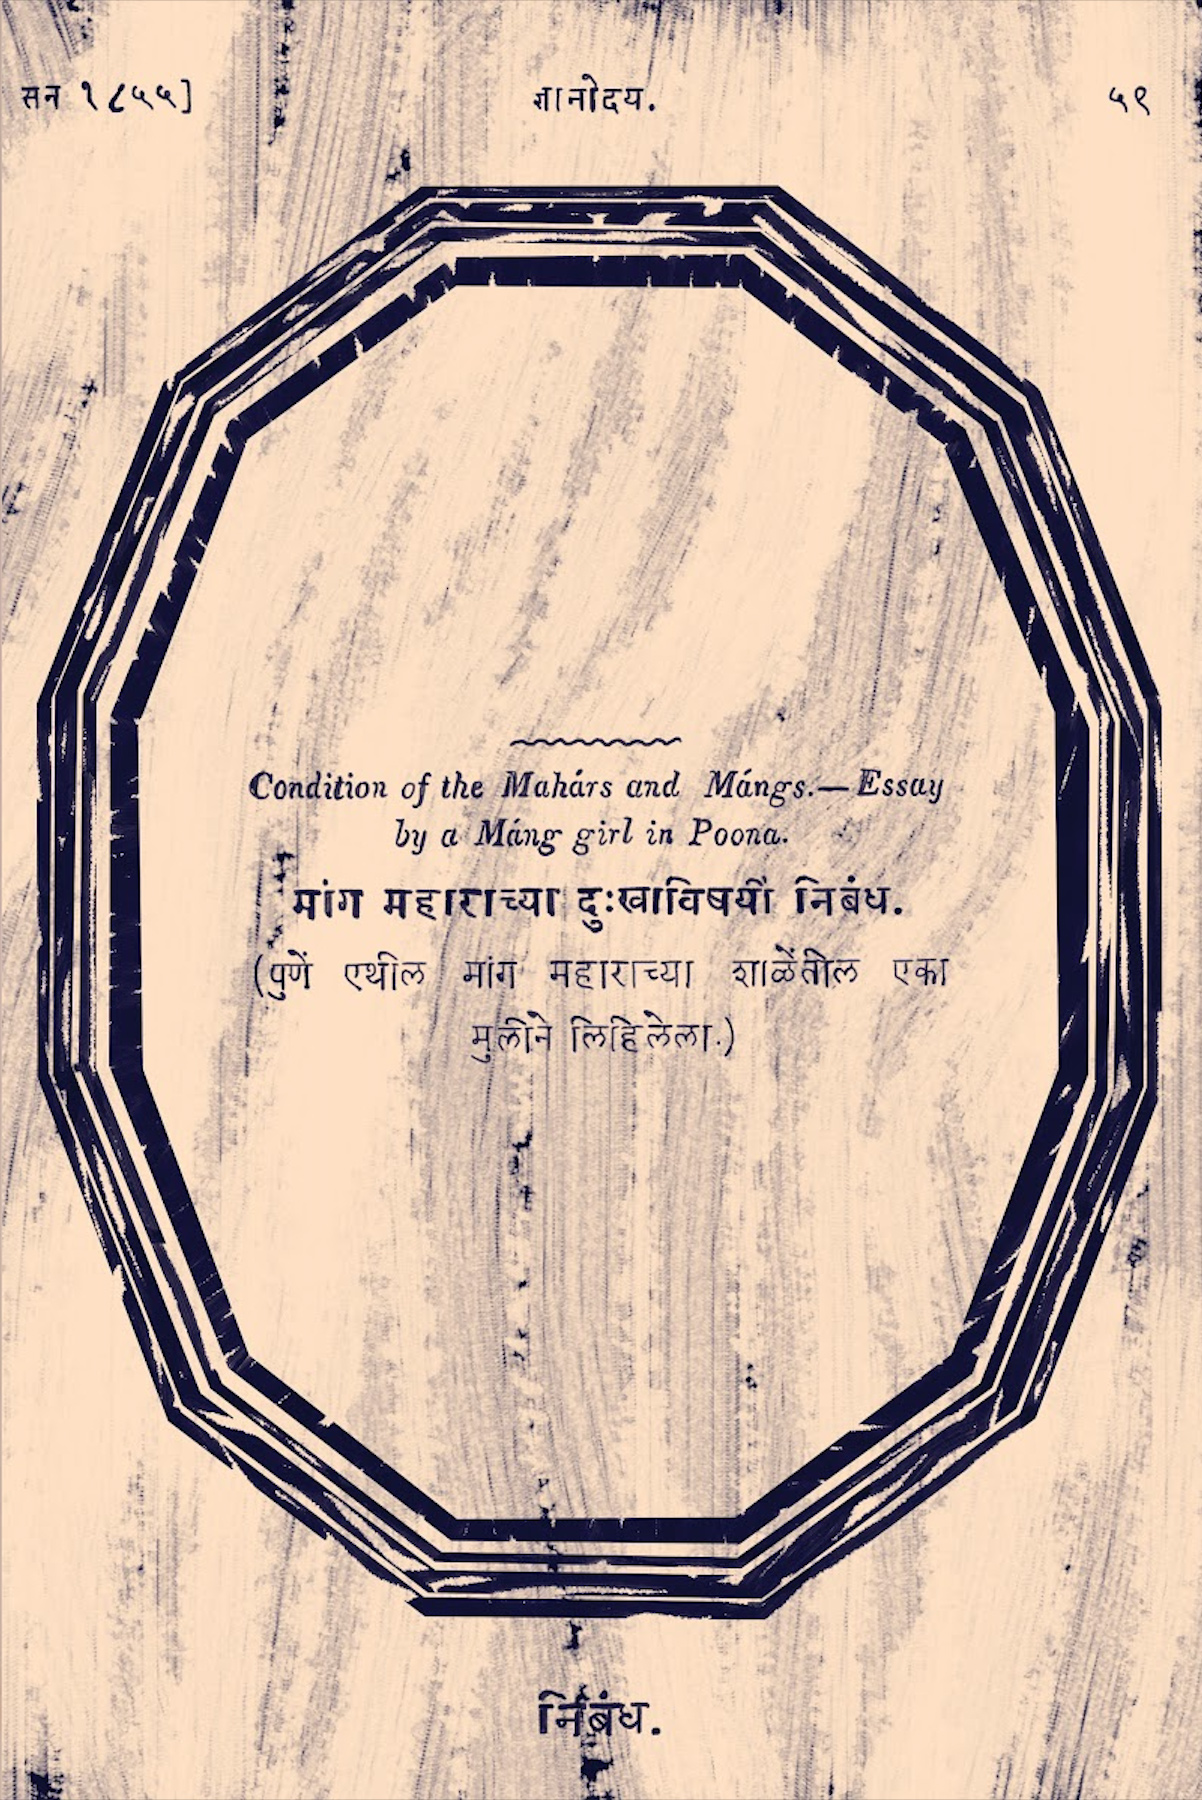 सन १८५५]
ज्ञानोदय.
५९
Condition of the Mahárs and Mángs.—Essay
by a Máng girl in Poona.
मांग महाराच्या दुःखाविषयीं निबंध.
(पुणें एथील मांग महाराच्या शाळेंतील एका
मुलीने लिहिलेला.)
निबंध.